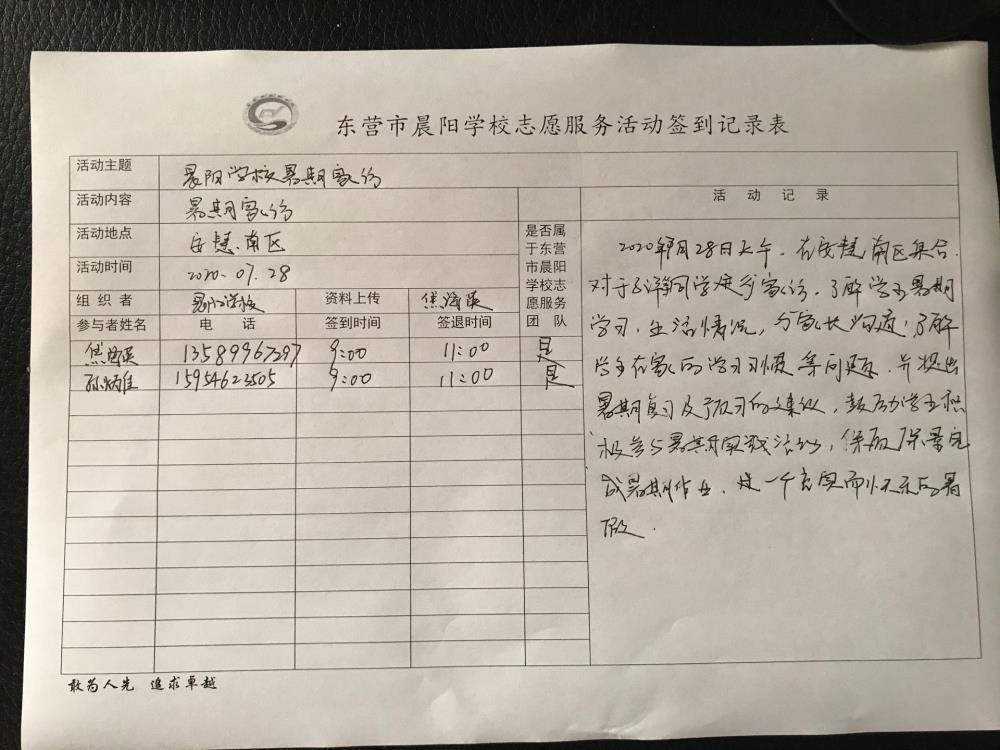 东营市晨阳学校志愿服务活动签到记录表
活动主题 晨阳学校暑期家访
活动内容 暑期家访
活动地点 安慧南区
活动时间 2020.07.28
组织者 资料上传 焦海英
参与者姓名 电话 签到时间 签退时间
是否属
于东营
市晨阳
学校志
愿服务
团队
焦海英 13589967397 9:00 11:00 是
孙炳佳 15954623505 9:00 11:00 是
活动记录
2020年7月28日上午,在安慧南区集合.
对于同学进行家访,了解学生暑期
学习、生活情况,与家长沟通,了解
学生在家的学习习惯等问题,并提出
暑期复习及预习的建议,鼓励学生积
极参与暑期实践活动,保质保量完
成暑期作业,过一个充实而快乐的暑
假.
敢为人先 追求卓越